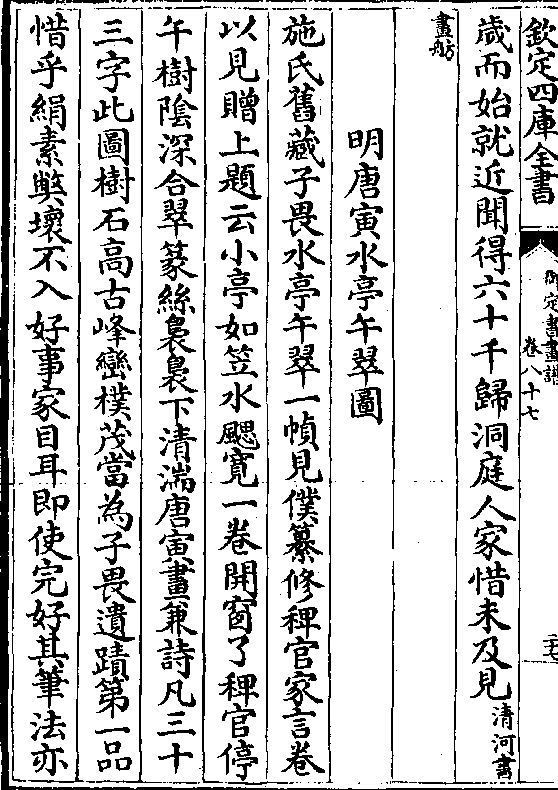 欽定四庫全書
御定書畫譜
卷八十七
二七
歲而始就近聞得六十千歸洞庭人家惜未及見清河書
畫舫
明唐寅水亭午翠圖
施氏舊藏子畏水亭午翠一幀見僕纂修稗官家言卷
以見贈上題云小亭如笠水颸寛一卷開窗了稗官停
午樹陰深合翠篆絲裊裊下清湍唐寅畫兼詩凡三十
三字此圖樹石高古峰巒樸茂當為子畏遺蹟第一品
惜乎絹素弊壞不入好事家目耳即使完好其筆法亦